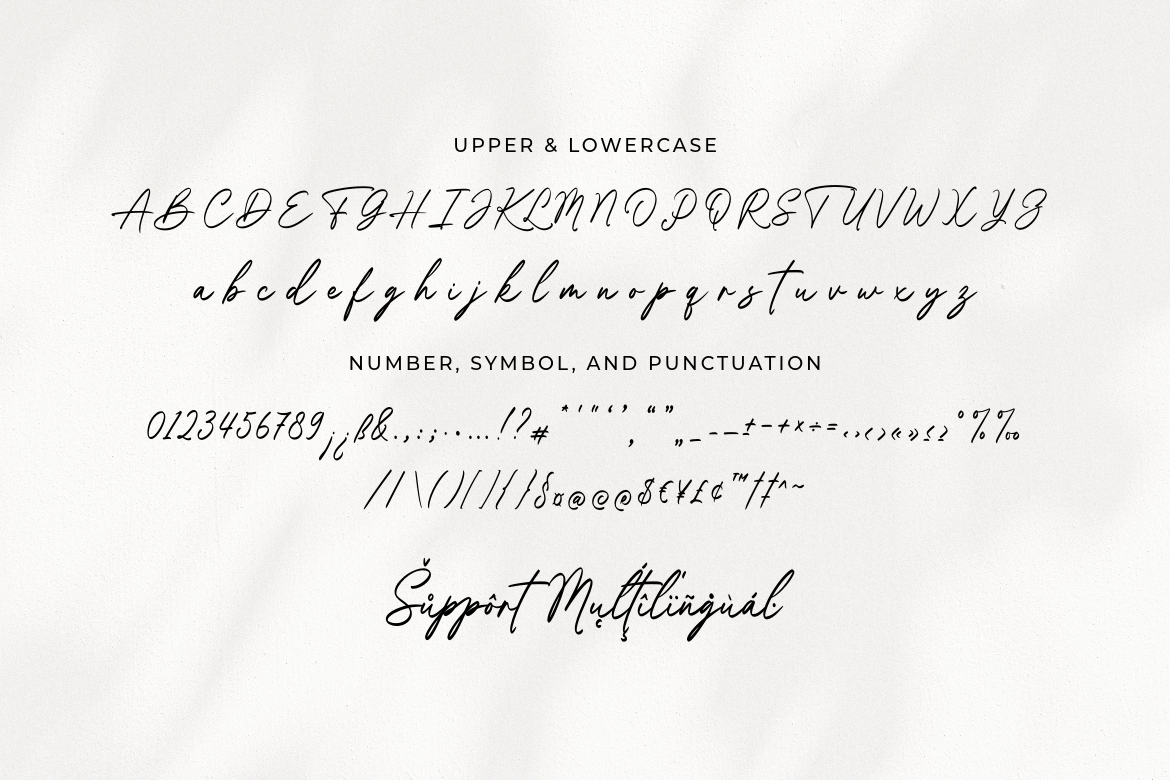 UPPER & LOWERCASE
A B C D E F G H I J K L M N O P Q R S T U V W X Y Z
a b c d e f g h i j k l m n o p q r s t u v w x y z
NUMBER, SYMBOL, AND PUNCTUATION
0123456789¡¿ß&.,:;·•…!?#*'"‘’‚“”„_-–—±−+×÷=‹›<>«»≤≥°%‰
/|\()[]{}§¤@©®$€¥£¢™†‡^~
Šůppôrt Mųļťîlïñġùáŀ